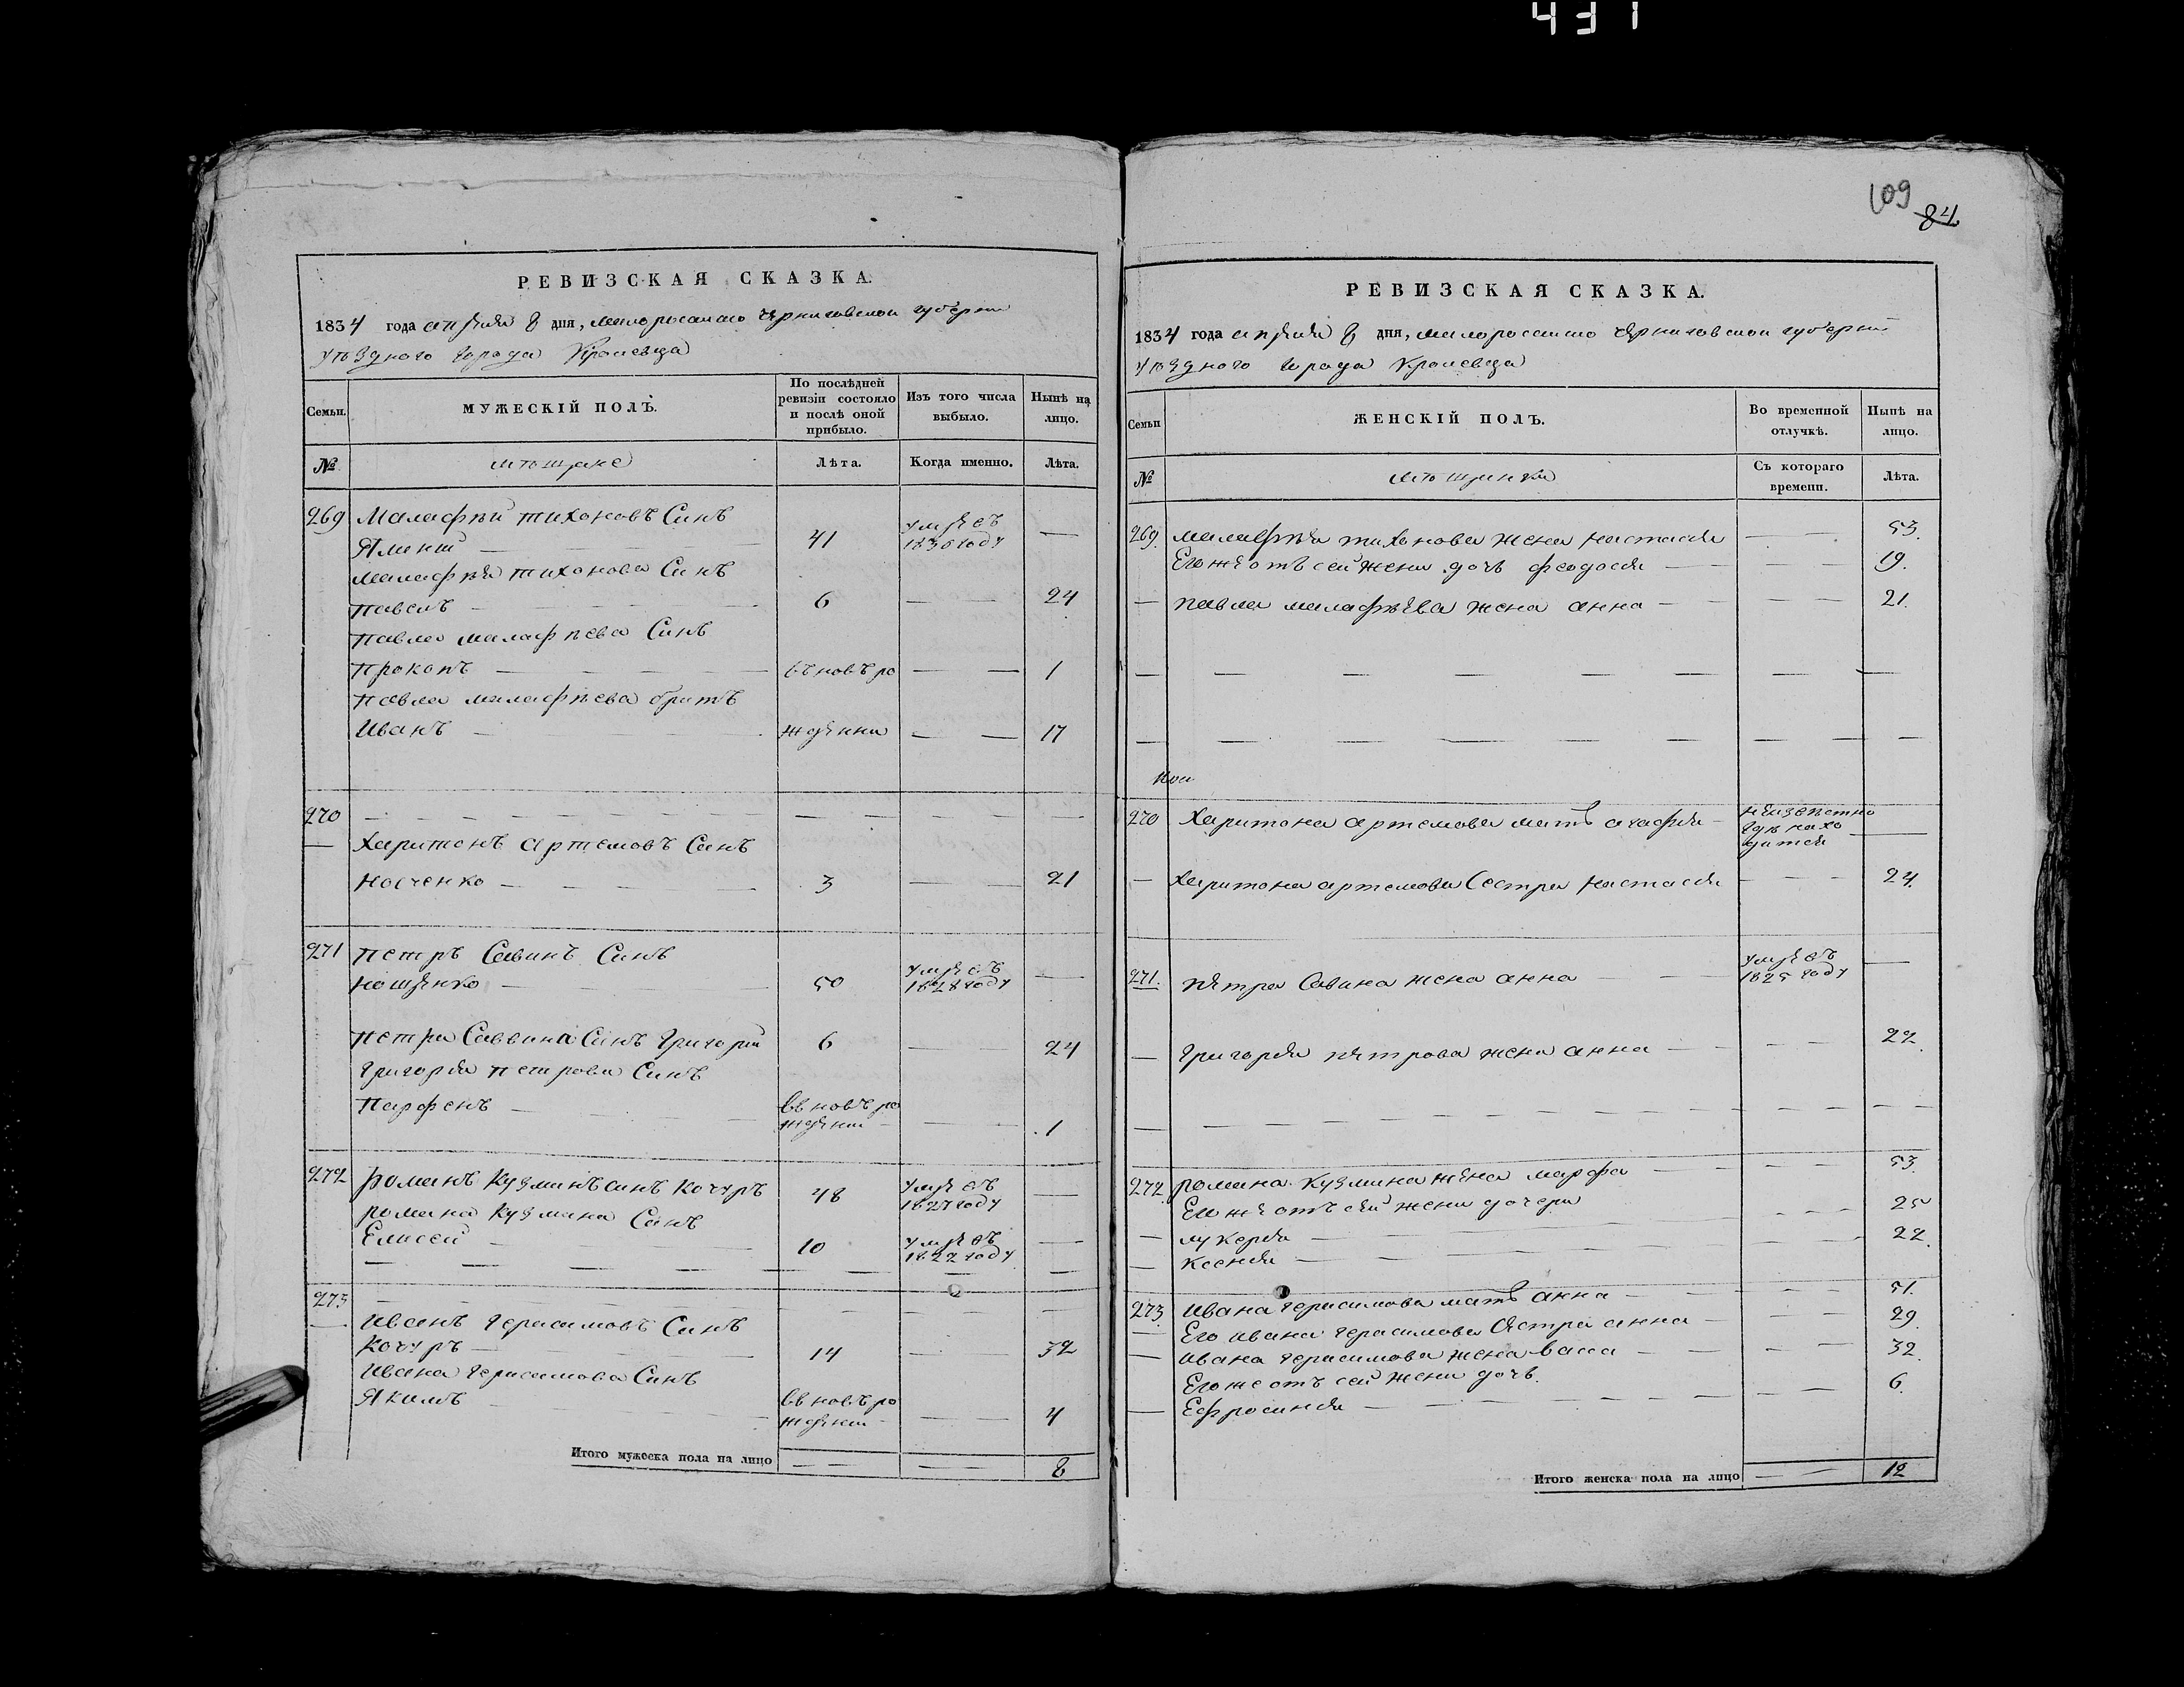 431
109
84
РЕВИЗСКАЯ СКАЗКА.
1834 года апреля 8 дня, малоросийско черниговской губернии
уѣздного города Кролевца
Семьи.
МУЖЕСКІЙ ПОЛЪ.
По послѣдней ревизіи состояло и послѣ оной прибыло.
Изъ того числа выбыло.
Нынѣ на лицо.
№
мѣщане
Лѣта.
Когда именно.
Лѣта.
269 Малафѣй тихоновъ Синъ
41 умре въ 1830 году —
малафѣя тихонова Синъ
павелъ — 6 — — 24
павла малафѣева Синъ
Прокопъ — въ новъ ро — — 1
павла малафѣева братъ
Иванъ — жденни — — 17
270 — — — — —
— Харитонъ артемовъ Синъ
Носченко — 3 — 21
271 петръ Савинъ Синъ
Нощенко — 50 умре въ 1828 году —
петра Саввина Синъ Григорий 6 — 24
Григорія петрова Синъ
Парфенъ — въ новъ ро
ждении — 1
272 романъ Кузминъ синъ Кочуръ 48 умре въ 1827 году —
романа Кузмина Синъ
Елисей — 10 умре въ 1822 году —
— — — — — —
273 — — — — —
— иванъ герасимовъ Синъ
Кочуръ — 14 — 32
Ивана герасимова Синъ
Якимъ — въ новъ ро
ждении — 4
Итого мужеска пола на лицо — — — — 8
РЕВИЗСКАЯ СКАЗКА.
1834 года апреля 8 дня, малоросийско черниговской губернии
уѣздного города Кролевца
Семьи
ЖЕНСКІЙ ПОЛЪ.
Во временной отлучкѣ.
Нынѣ на лицо.
№
мѣщанки
Съ котораго времени.
Лѣта.
269. малафѣя тихонова жена настасия — — 53.
Его же отъ сей жени дочь феодосия — — — 19.
— павла малафѣева жена анна — — — 21.
— — — — — — — —
— — — — — — — —
270 Харитона артемова мать агафия — неизвѣстно
гдѣ нахо
дится —
— Харитона артемова Сестра настасия — — — 24.
271. петра Савина жена анна — умре въ 1825 году —
— григорія петрова жена анна — — — 22.
— — — — — — — —
272. романа Кузмина жена марфа — — — 53.
Его же отъ сей жени дочери
— лукерія — — — 25
— Ксенія — — — 22.
273. ивана герасимова мать анна — — — 51.
— Его ивана герасимова Сестра анна — — — 29.
— ивана герасимова жена васса — — — 32.
Его же отъ сей жени дочь.
— Ефросинія — — — 6.
Итого женска пола на лицо — — 12